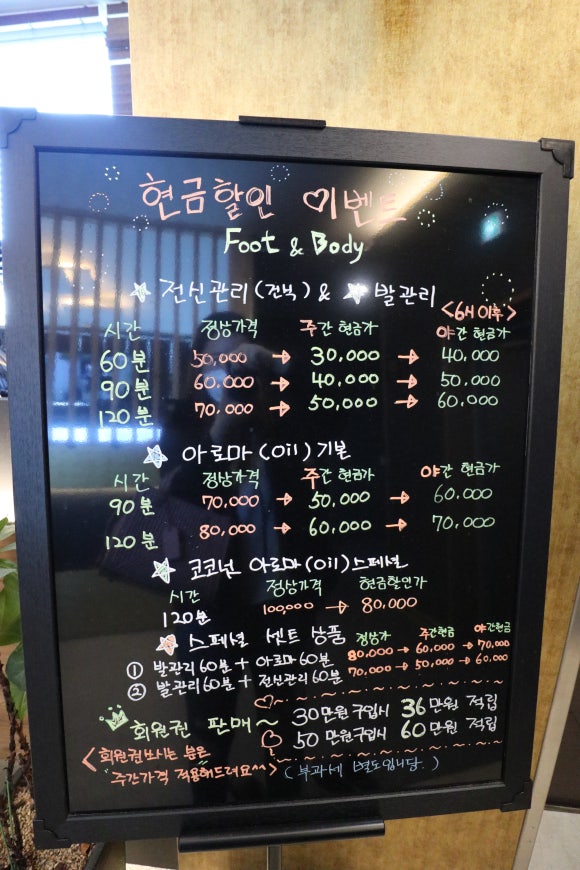 현금할인 이벤트
Foot & Body
전신관리(건식) & 발관리
<6시 이후>
시간 정상가격 주간 현금가 야간 현금가
60분 50,000 → 30,000 → 40,000
90분 60,000 → 40,000 → 50,000
120분 70,000 → 50,000 → 60,000
아로마(oil)기본
시간 정상가격 주간 현금가 야간 현금가
90분 70,000 → 50,000 → 60,000
120분 80,000 → 60,000 → 70,000
코코넛 아로마(oil)스페셜
시간 정상가격 현금할인가
120분 100,000 → 80,000
스페셜 셋트 상품 정상가 주간현금 야간현금
① 발관리60분 + 아로마60분 80,000 → 60,000 → 70,000
② 발관리60분 + 전신관리60분 70,000 → 50,000 → 60,000
회원권 판매~ 30만원 구입시 36만원 적립
50만원구입시 60만원 적립
<회원권쓰시는 분은
주간가격 적용해드려요^^> (부과세 별도입니당.)